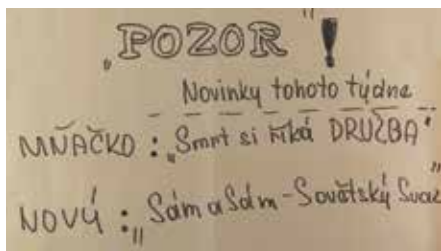 „POZOR“!
Novinky tohoto týdne
MŇAČKO: „Smrt si říká DRUŽBA“
NOVÝ: „Sám a Sám - Sovětský Svaz“